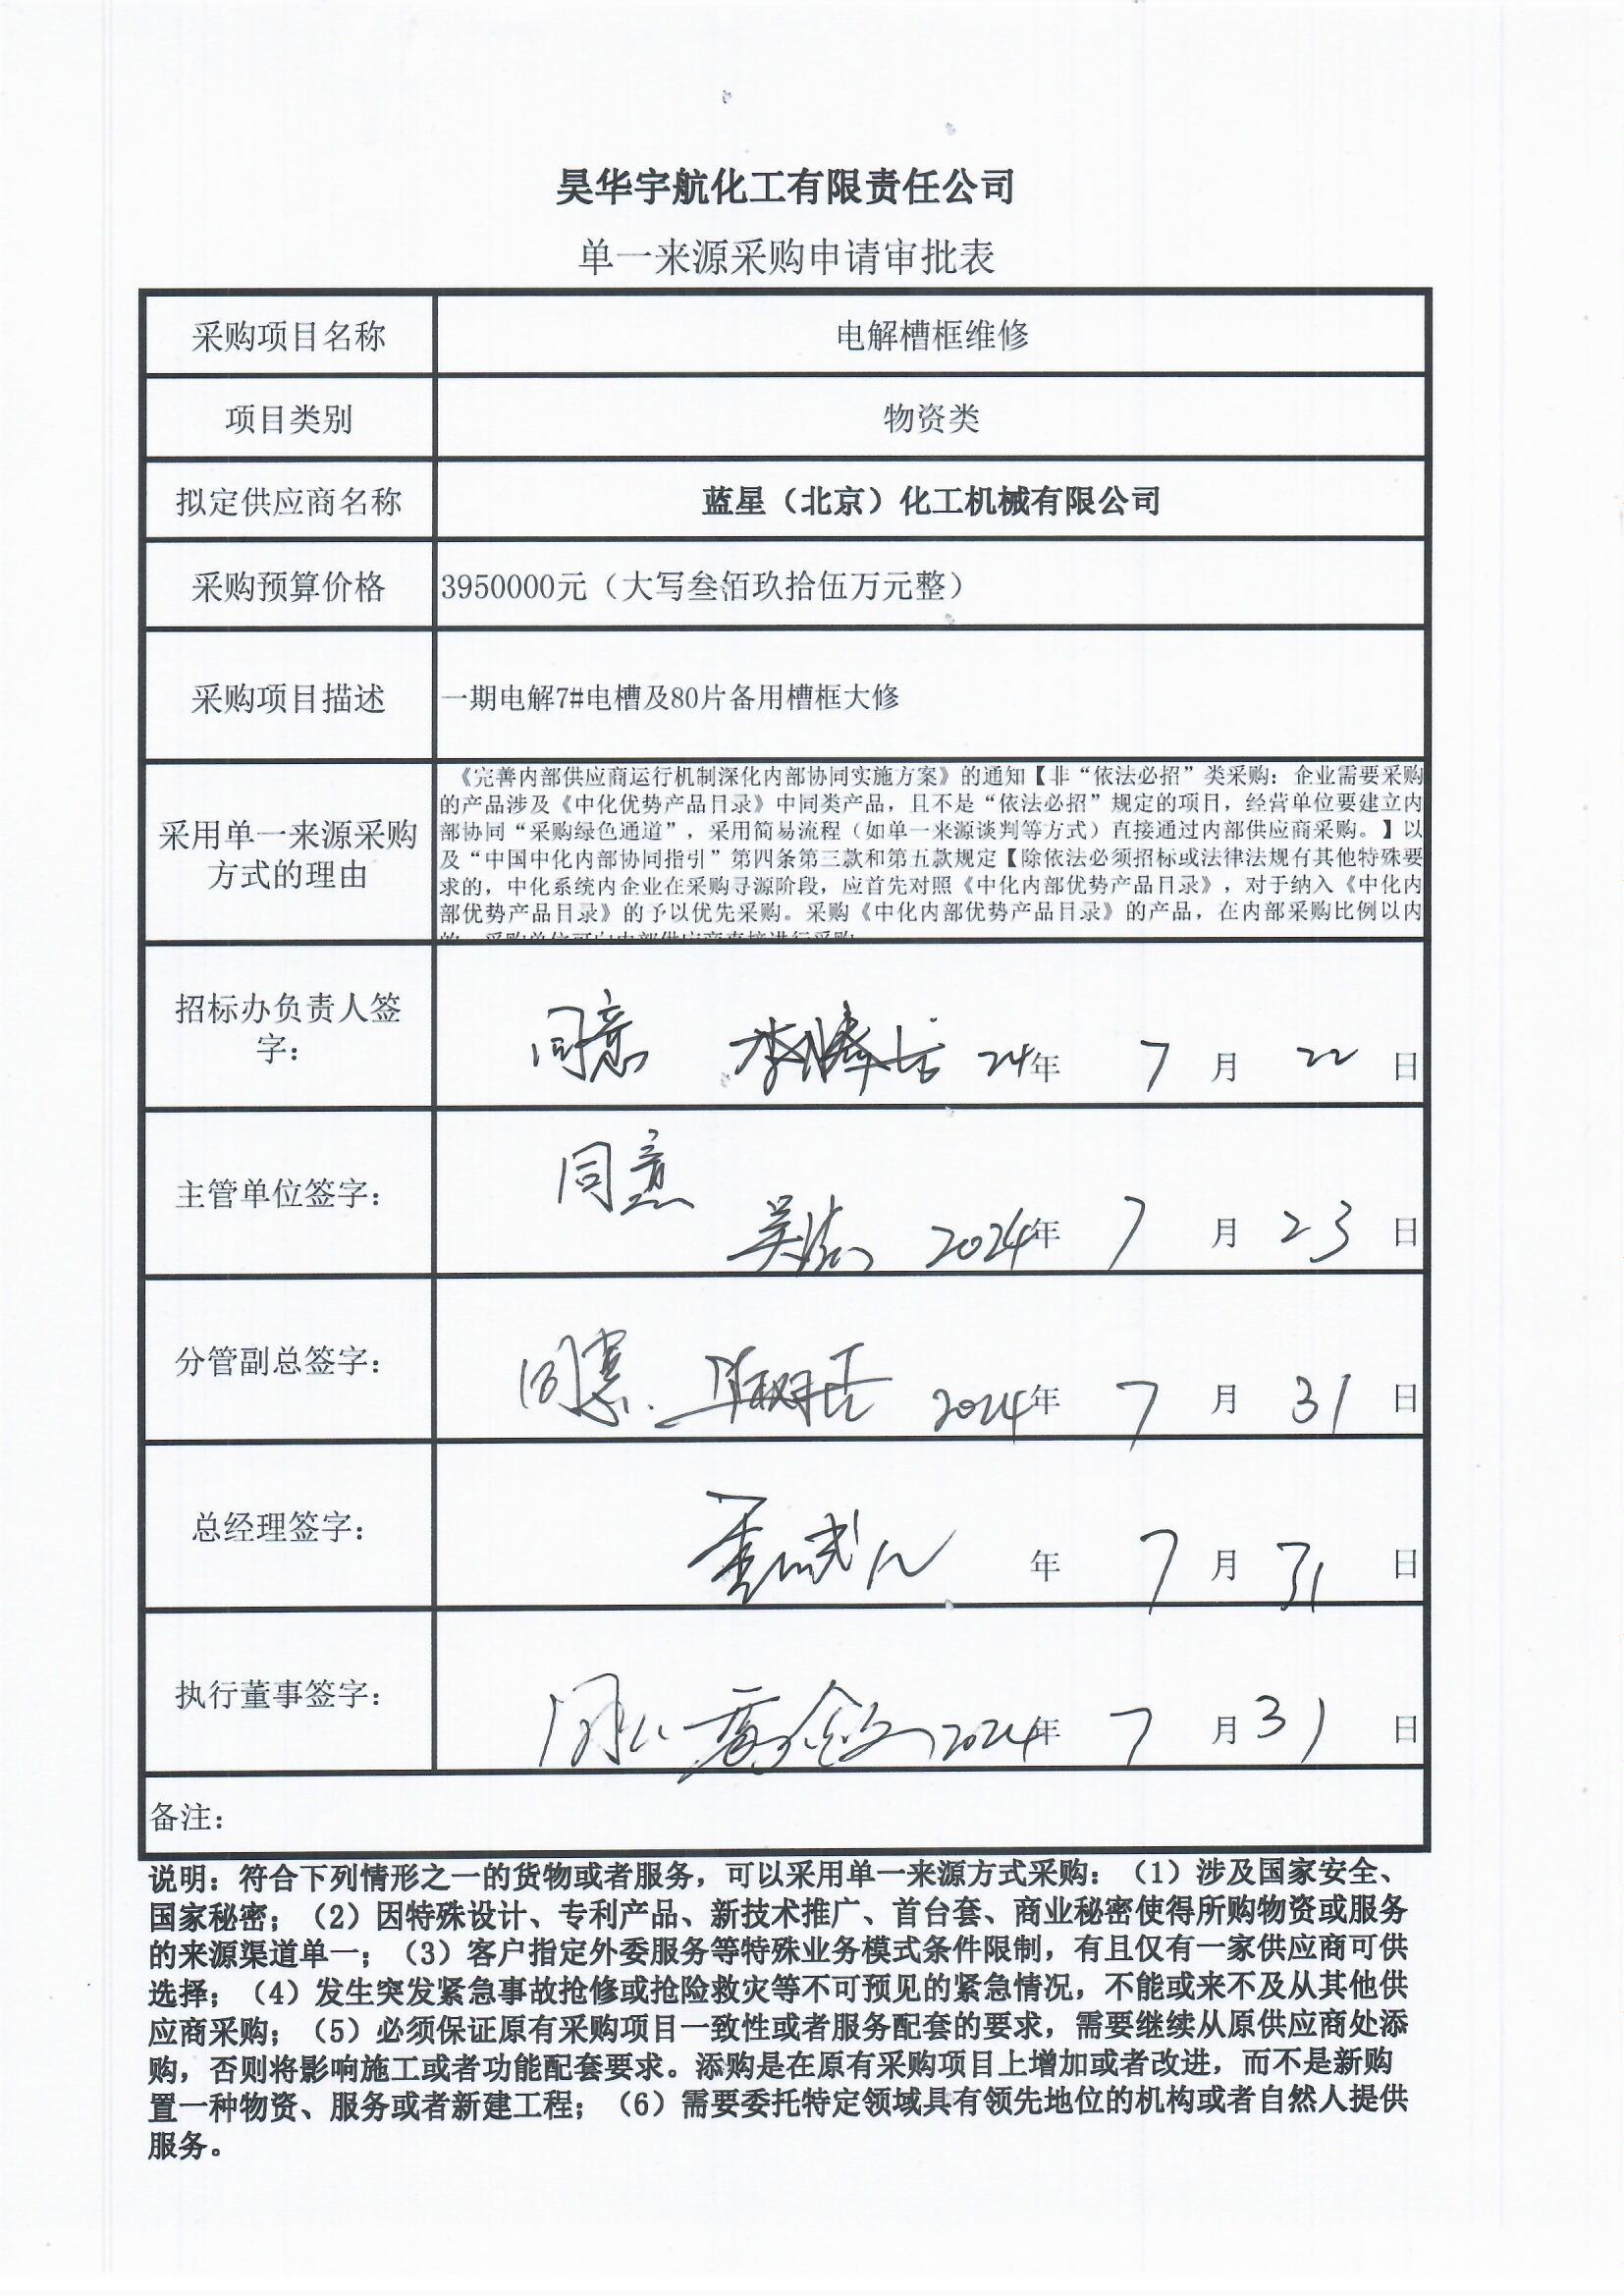 昊华宇航化工有限责任公司
单一来源采购申请审批表
采购项目名称
电解槽框维修
项目类别
物资类
拟定供应商名称
蓝星（北京）化工机械有限公司
采购预算价格
3950000元（大写叁佰玖拾伍万元整）
采购项目描述
一期电解7#电槽及80片备用槽框大修
采用单一来源采购
方式的理由
《完善内部供应商运行机制深化内部协同实施方案》的通知【非“依法必招”类采购：企业需要采购
的产品涉及《中化优势产品目录》中同类产品，且不是“依法必招”规定的项目，经营单位要建立内
部协同“采购绿色通道”，采用简易流程（如单一来源谈判等方式）直接通过内部供应商采购。】以
及“中国中化内部协同指引”第四条第三款和第五款规定【除依法必须招标或法律法规有其他特殊要
求的，中化系统内企业在采购寻源阶段，应首先对照《中化内部优势产品目录》，对于纳入《中化内
部优势产品目录》的予以优先采购。采购《中化内部优势产品目录》的产品，在内部采购比例以内
招标办负责人签
字：
同意 24年 7月 22日
主管单位签字：
同意
2024年 7月 23日
分管副总签字：
同意. 2024年 7月 31日
总经理签字：
年 7月 31日
执行董事签字：
2024年 7月 31日
备注：
说明：符合下列情形之一的货物或者服务，可以采用单一来源方式采购：（1）涉及国家安全、
国家秘密；（2）因特殊设计、专利产品、新技术推广、首台套、商业秘密使得所购物资或服务
的来源渠道单一；（3）客户指定外委服务等特殊业务模式条件限制，有且仅有一家供应商可供
选择；（4）发生突发紧急事故抢修或抢险救灾等不可预见的紧急情况，不能或来不及从其他供
应商采购；（5）必须保证原有采购项目一致性或者服务配套的要求，需要继续从原供应商处添
购，否则将影响施工或者功能配套要求。添购是在原有采购项目上增加或者改进，而不是新购
置一种物资、服务或者新建工程；（6）需要委托特定领域具有领先地位的机构或者自然人提供
服务。